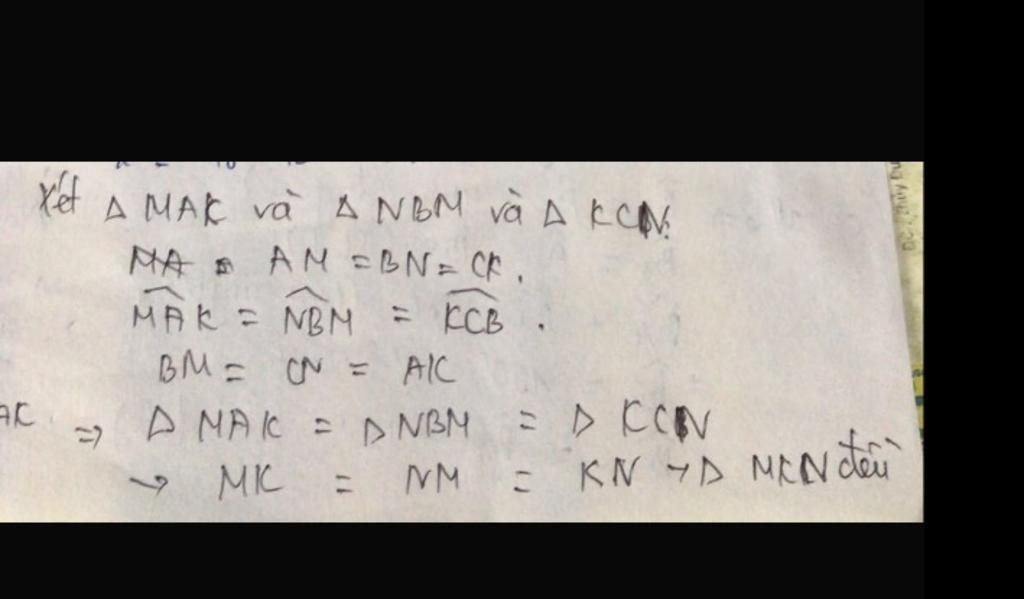 Xét Δ MAK và Δ NBM và Δ KCN:
MA = AM = BN = CK.
\widehat{MAK} = \widehat{NBM} = \widehat{KCB}.
BM = CN = AK
AK ⇒ Δ MAK = Δ NBM = Δ KCN
→ MK = NM = KN → Δ MKN đều